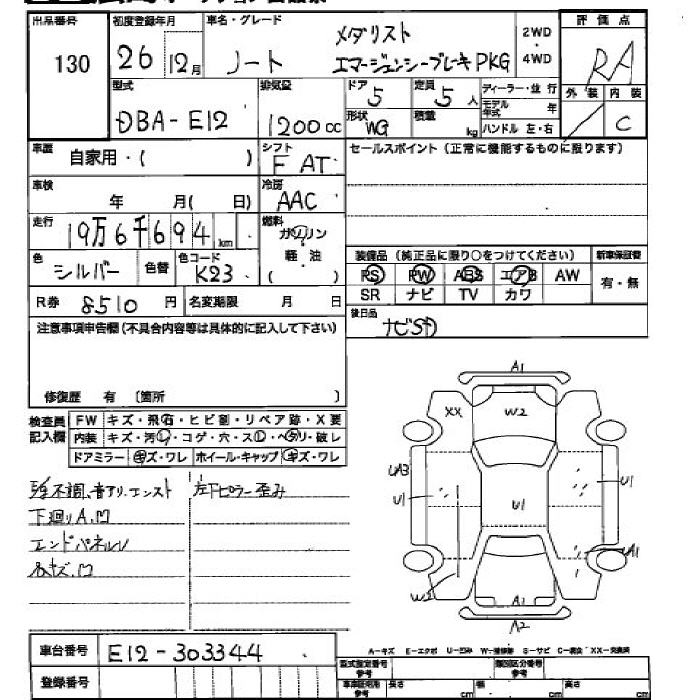 出品番号
130
初度登録年月
26 12月
車名・グレード
ノート
メダリスト
エマージェンシーブレーキPKG
2WD
・
4WD
評価点
RA
外装 内装
C
型式
DBA-E12
排気量
1200cc
ドア
5
定員
5人
形状
WG
積載
kg
ディーラー・並行
モデル年式 年
ハンドル 左・右
車歴
自家用・( )
シフト
F AT
セールスポイント(正常に機能するものに限ります)
車検
年 月( 日)
冷房
AAC
走行
19万6千694 km
燃料
ガソリン
軽・油
( )
色
シルバー
色替
色コード
K23
装備品(純正品に限り○をつけてください)
新車保証書
PS PW ABS エアB AW
有・無
SR ナビ TV カワ
R券 8510円
名変期限 月 日
後日品
ナビSD
注意事項申告欄(不具合内容等は具体的に記入して下さい)
修復歴 有 〔箇所 〕
検査員
記入欄
FW キズ・飛石・ヒビ割・リペア跡・X要
内装 キズ・汚レ・コゲ・穴・スレ・ヘタリ・破レ
ドアミラー キズ・ワレ ホイール・キャップ キズ・ワレ
不調、音アリ、エンスト
左下ピラー歪み
下廻りA、凹
エンドパネルU
キズ、凹
A1
XX
W2
UA3
U1
U1
U1
UA1
W2
A1
A2
車台番号
E12-303344
登録番号
A-キズ E-エクボ U-凹み W-補修跡 S-サビ C-腐食 XX-交換済
型式指定番号
参考
類別区分番号
参考
車庫証明用
参考
長さ cm
幅 cm
高さ cm